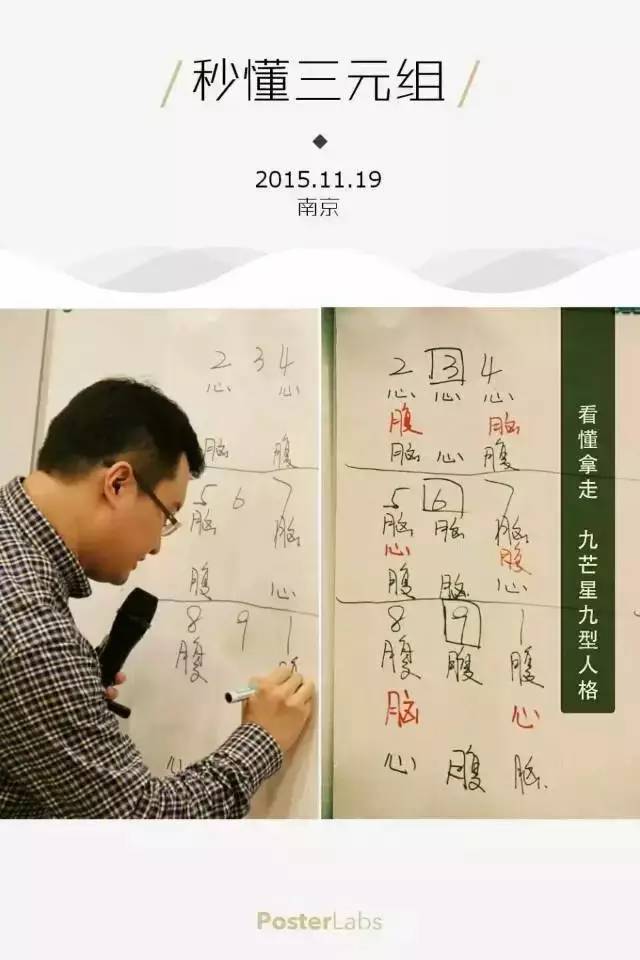 秒懂三元组
2015.11.19
南京
2 3 4
心 心
脑 腹
5 6 7
脑 脑
腹 心
8 9 1
腹 腹
心
2 3 4
心 心 心
腹 脑
脑 心 腹
5 6 7
脑 脑 脑
心 腹
腹 脑 心
8 9 1
腹 腹 腹
脑 心
心 腹 脑
看懂拿走 九芒星九型人格
PosterLabs